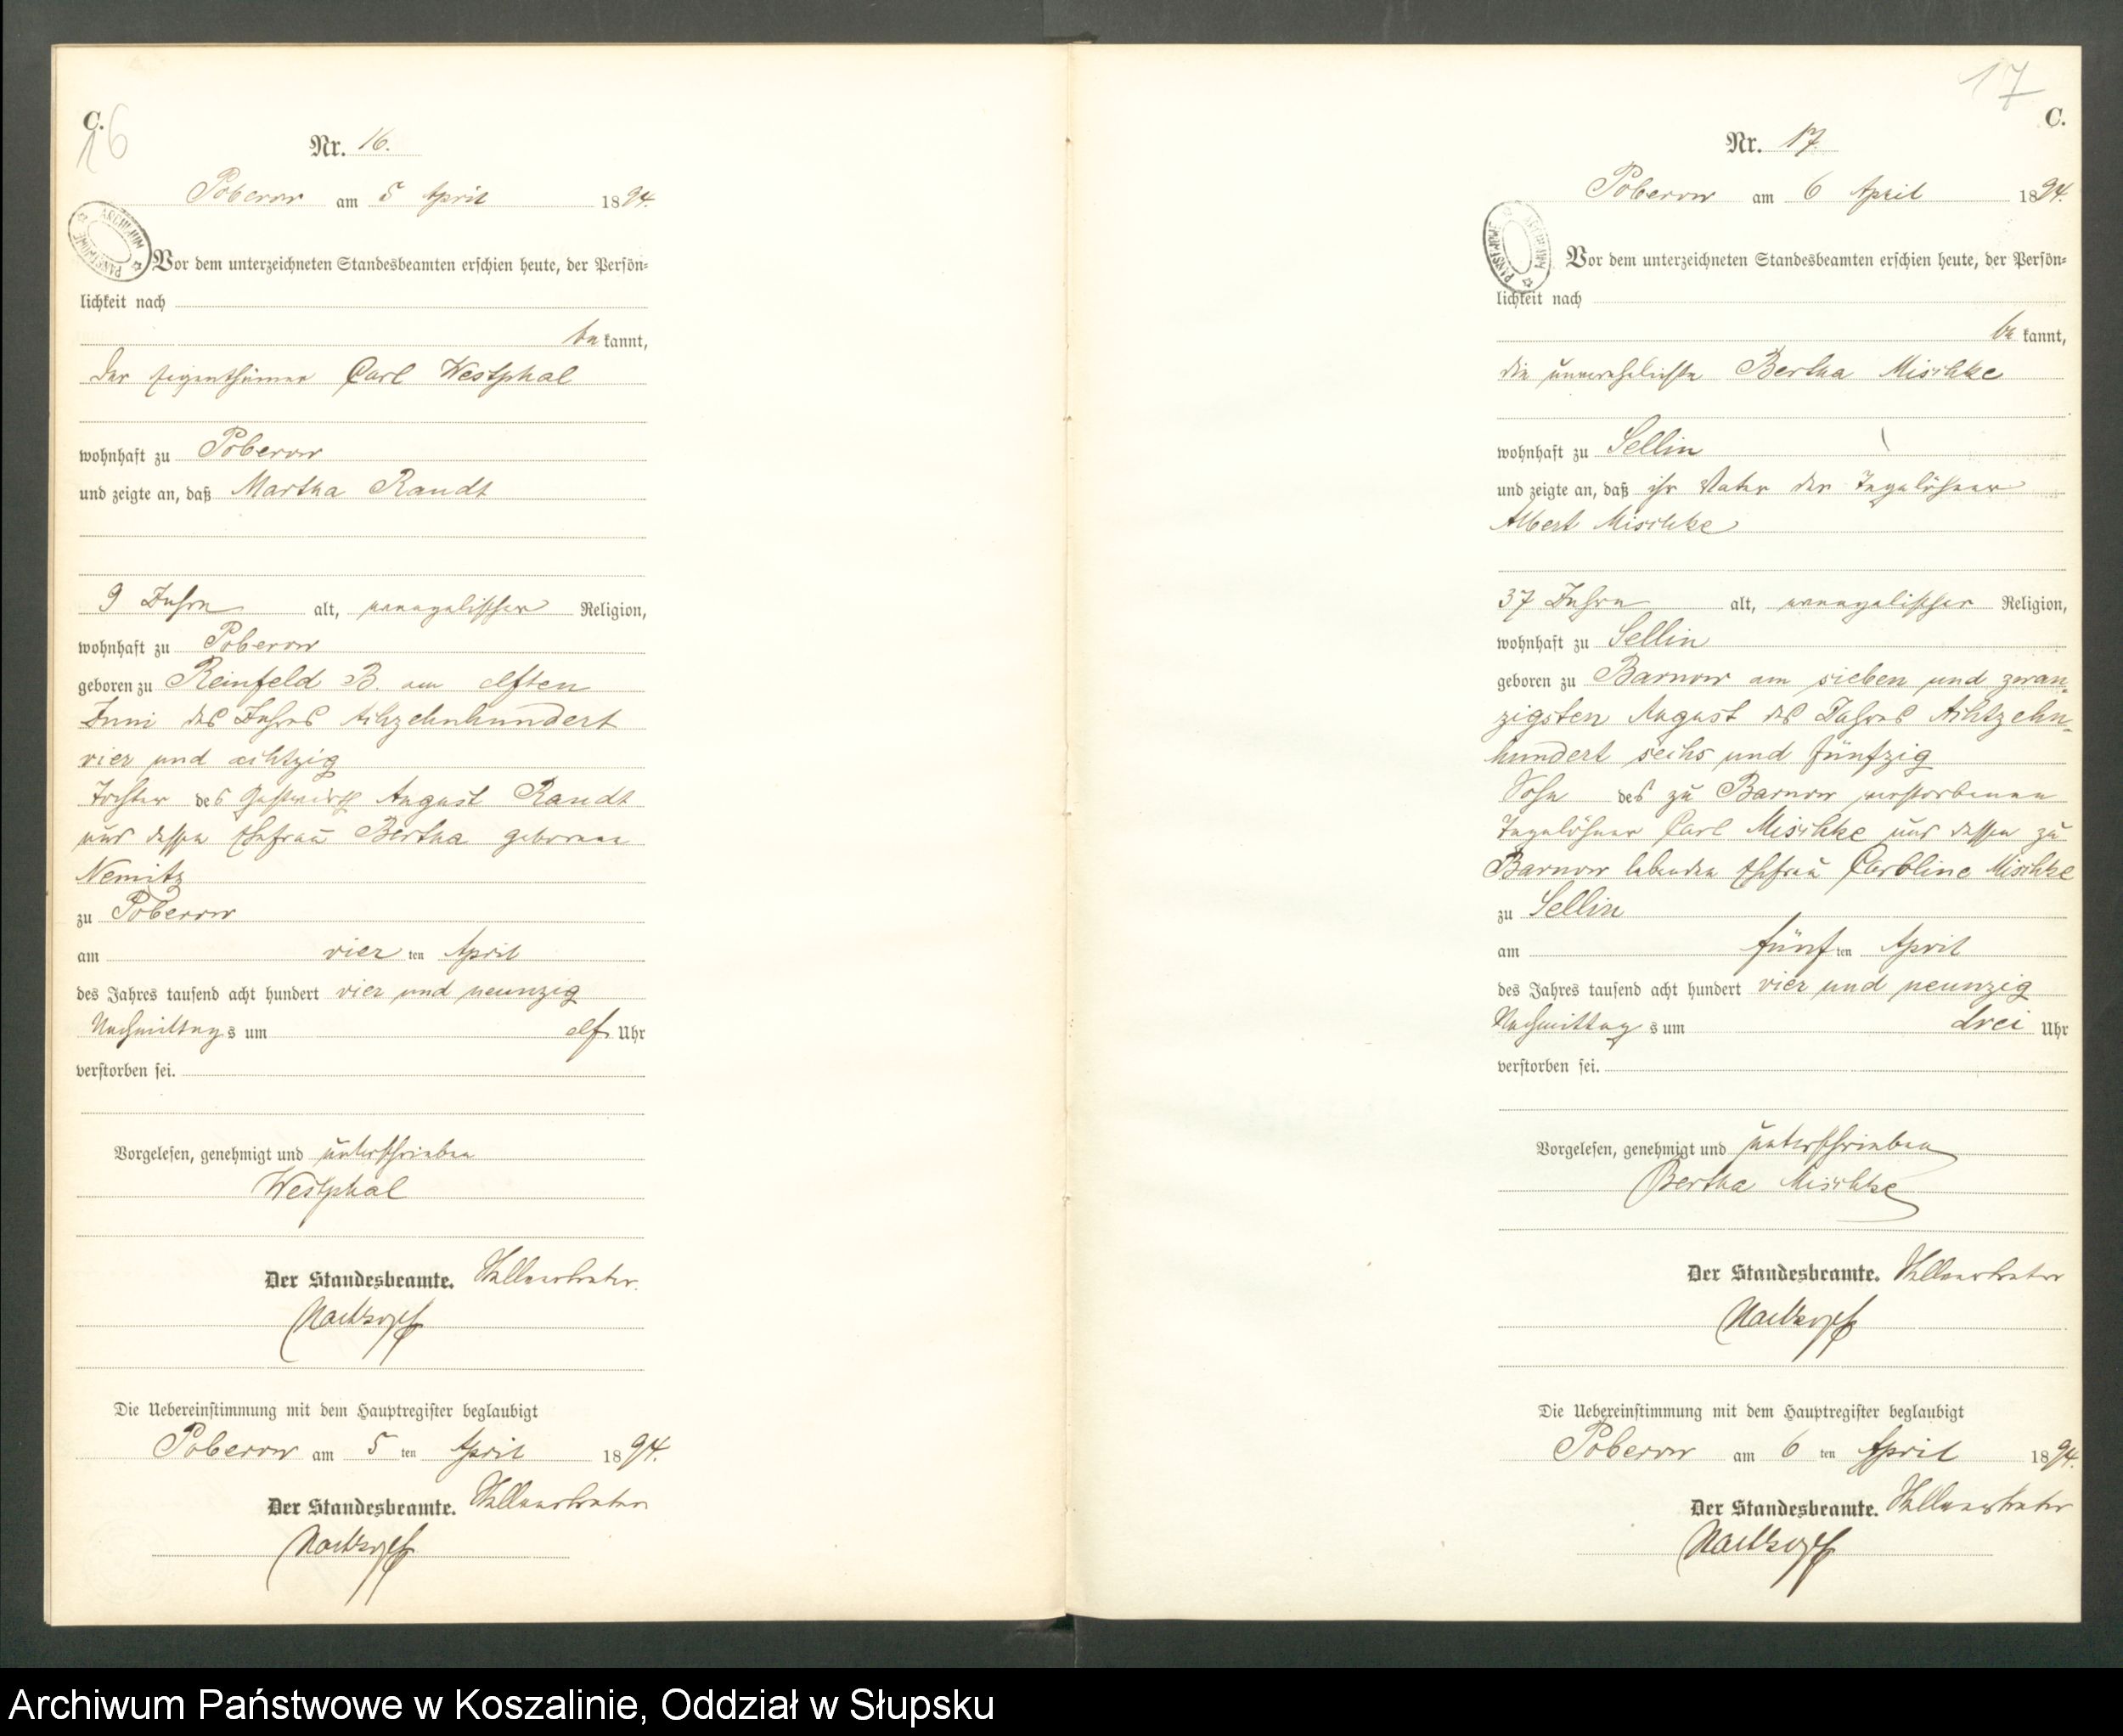 C.
16
Nr. 16.
Poberow am 5 April 1894.
ARCHIWUM PAŃSTWOWE
Vor dem unterzeichneten Standesbeamten erschien heute, der Persön-
lichkeit nach
bekannt,
der Eigenthümer Carl Westphal
wohnhaft zu Poberow
und zeigte an, daß Martha Randt
9 Jahre alt, evangelischer Religion,
wohnhaft zu Poberow
geboren zu Reinfeld B. am elften
Juni des Jahres Achzehnhundert
vier und achtzig
Tochter des Gastwirth August Randt
und dessen Ehefrau Bertha geborene
Nemitz
zu Poberow
am vierten April
des Jahres tausend acht hundert vier und neunzig
Nachmittags um elf Uhr
verstorben sei.
Vorgelesen, genehmigt und unterschrieben
Westphal
Der Standesbeamte. Stellvertreter.
Die Uebereinstimmung mit dem Hauptregister beglaubigt
Poberow am 5ten April 1894.
Der Standesbeamte. Stellvertreter
17
C.
Nr. 17.
Poberow am 6 April 1894.
ARCHIWUM PAŃSTWOWE
Vor dem unterzeichneten Standesbeamten erschien heute, der Persön-
lichkeit nach
bekannt,
die unverehelichte Bertha Mischke
wohnhaft zu Sellin
und zeigte an, daß ihr Vater der Tagelöhner
Albert Mischke
37 Jahre alt, evangelischer Religion,
wohnhaft zu Sellin
geboren zu Barnow am sieben und zwan-
zigsten August des Jahres Achtzehn-
hundert sechs und fünfzig
Sohn des zu Barnow verstorbenen
Tagelöhner Carl Mischke und dessen zu
Barnow lebenden Ehefrau Caroline Mischke
zu Sellin
am fünften April
des Jahres tausend acht hundert vier und neunzig
Nachmittags um drei Uhr
verstorben sei.
Vorgelesen, genehmigt und unterschrieben
Bertha Mischke
Der Standesbeamte. Stellvertreter
Die Uebereinstimmung mit dem Hauptregister beglaubigt
Poberow am 6ten April 1894.
Der Standesbeamte. Stellvertreter
Archiwum Państwowe w Koszalinie, Oddział w Słupsku